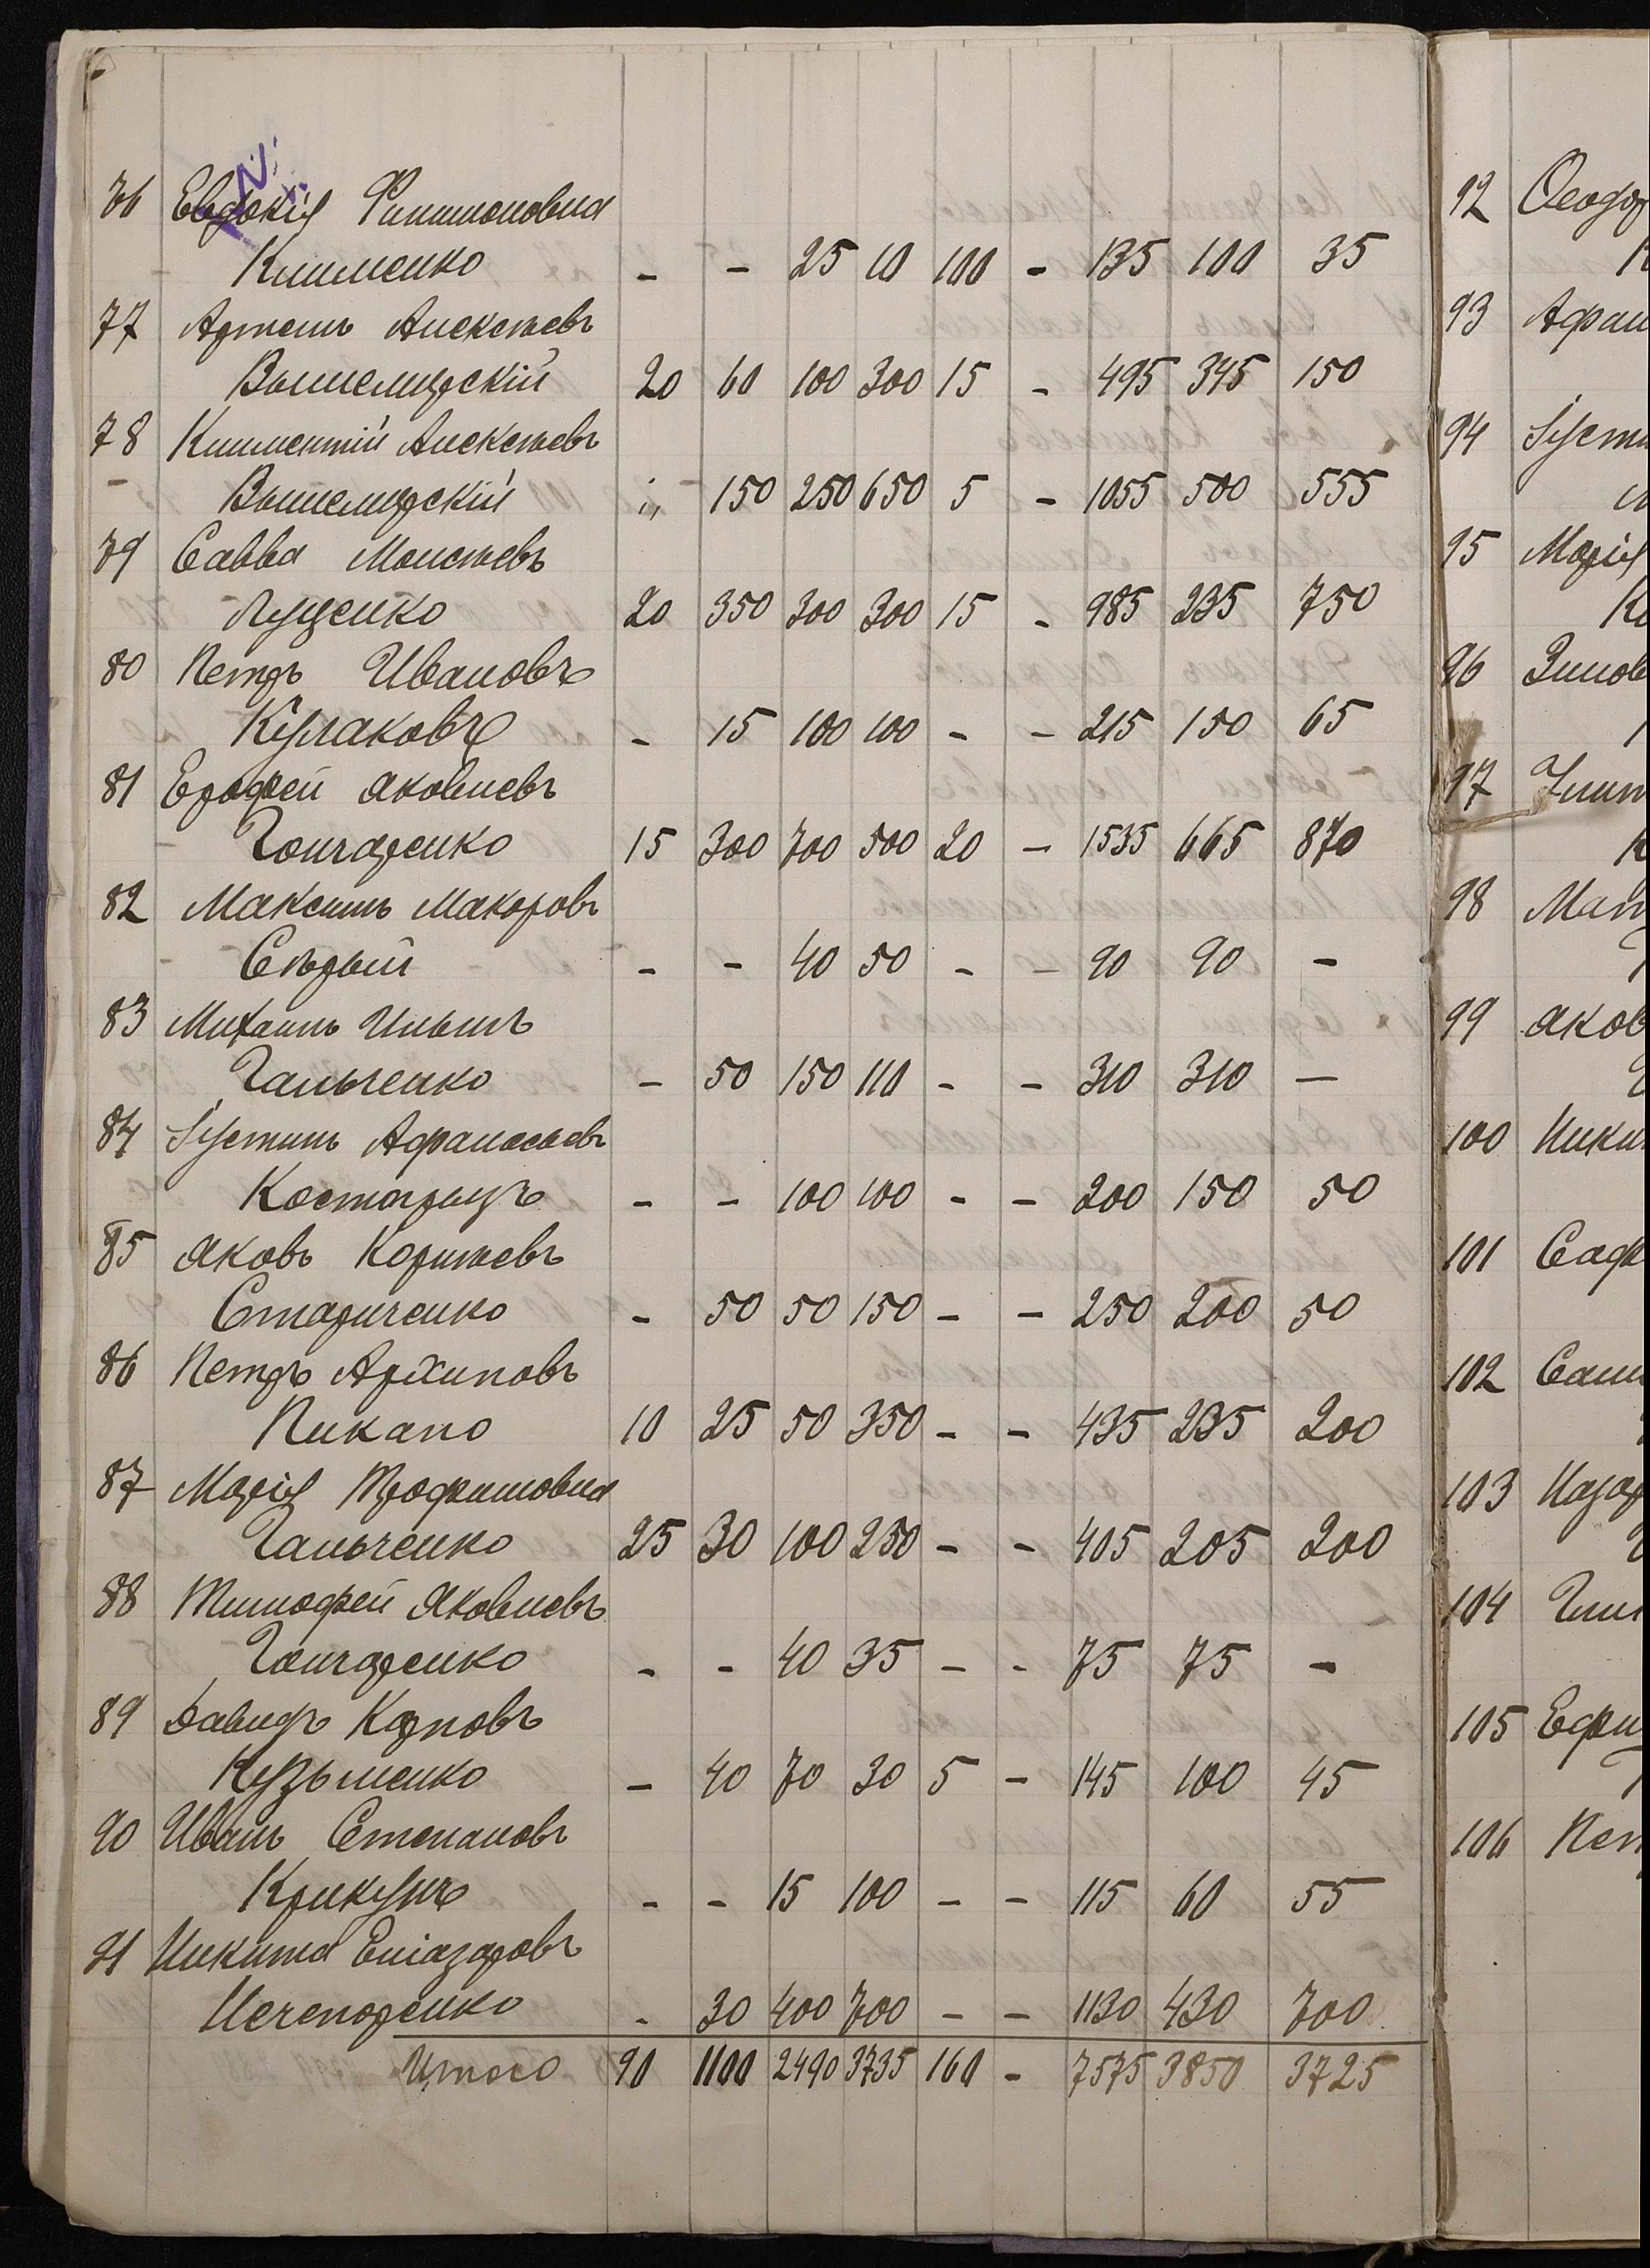 76 Евдокія Филимоновна
Клименко - - 25 10 100 - 135 100 35
77 Артемъ Алексѣевъ
Вышемирскій 20 60 100 300 15 - 495 345 150
78 Климентій Алексѣевъ
Вышемирскій - 150 250 650 5 - 1055 500 555
79 Савва Моисѣевъ
Луценко 20 350 300 300 15 - 985 235 750
80 Петръ Ивановъ
Кулаковъ - 15 100 100 - - 215 150 65
81 Ерофей Яковлевъ
Гончаренко 15 300 700 500 20 - 1535 665 870
82 Максимъ Макаровъ
Сѣрый - - 40 50 - - 90 90 -
83 Михаилъ Ильинъ
Гальченко - 50 150 110 - - 310 310 -
84 Іустинъ Афанасьевъ
Костогрызъ - - 100 100 - - 200 150 50
85 Яковъ Корнѣевъ
Стариченко - 50 50 150 - - 250 200 50
86 Петръ Архиповъ
Пикало 10 25 50 350 - - 435 235 200
87 Марія Трофимовна
Гальченко 25 30 100 250 - - 405 205 200
88 Тимофей Яковлевъ
Гончаренко - - 40 35 - - 75 75 -
89 Давидъ Карповъ
Кузьменко - 40 70 30 5 - 145 100 45
90 Иванъ Степановъ
Крикунъ - - 15 100 - - 115 60 55
91 Никита Еліазаровъ
Нечепоренко - 30 400 700 - - 1130 430 700
Итого 90 1100 2490 3735 160 - 7575 3850 3725
92 Ѳеодор
93 Афан
94 Іусти
95 Марія
96 Зинов
97
98
99 Яков
100 Ники
101
102
103 Назар
104
105 Ефи
106 Пет